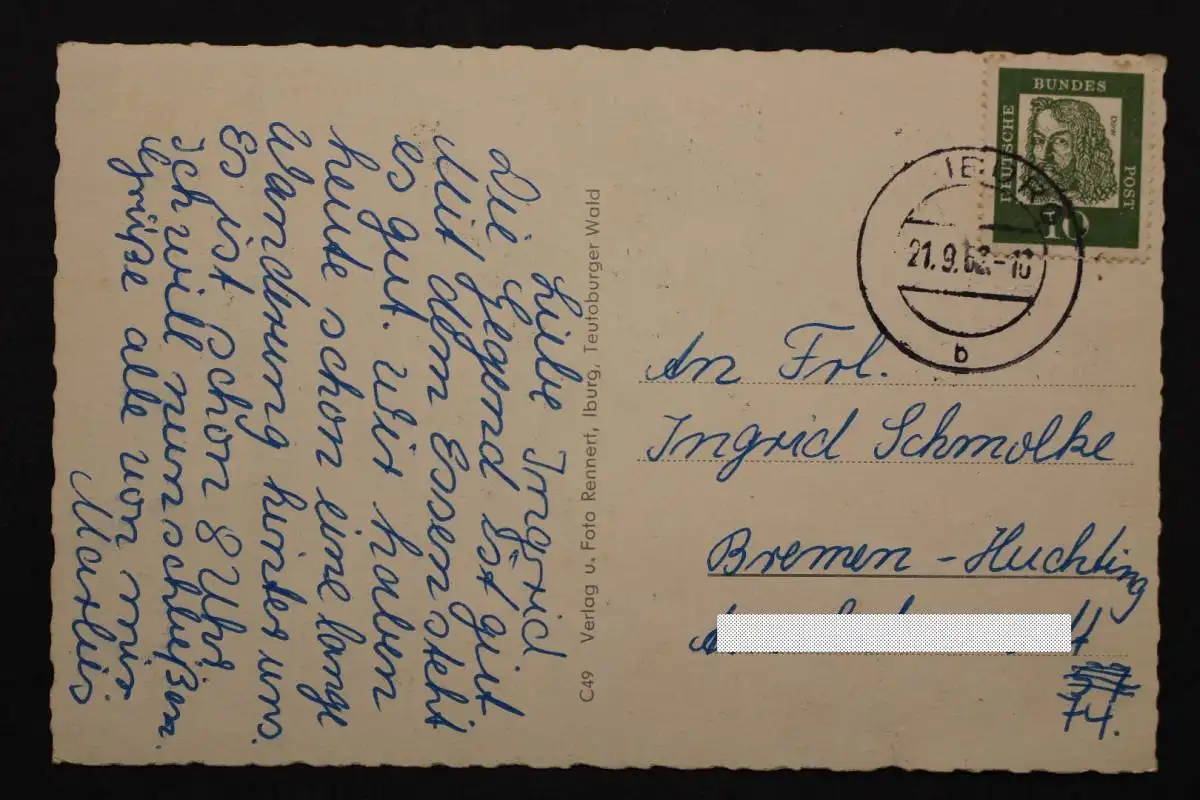 Liebe Ingrid.
Die Gegend ist gut
Mit dem Essen steht
es gut. Wir haben
heute schon eine lange
Wanderung hinter uns.
Es ist schon 8 Uhr
Ich will nun schließen.
Grüße alle von mir
Marlies
C49 Verlag u. Foto Rennert, Iburg, Teutoburger Wald
DEUTSCHE BUNDES POST
Dürer
10
IBURG
21.9.62.-18
b
An Frl.
Ingrid Schmolke
Bremen - Huchting
74.